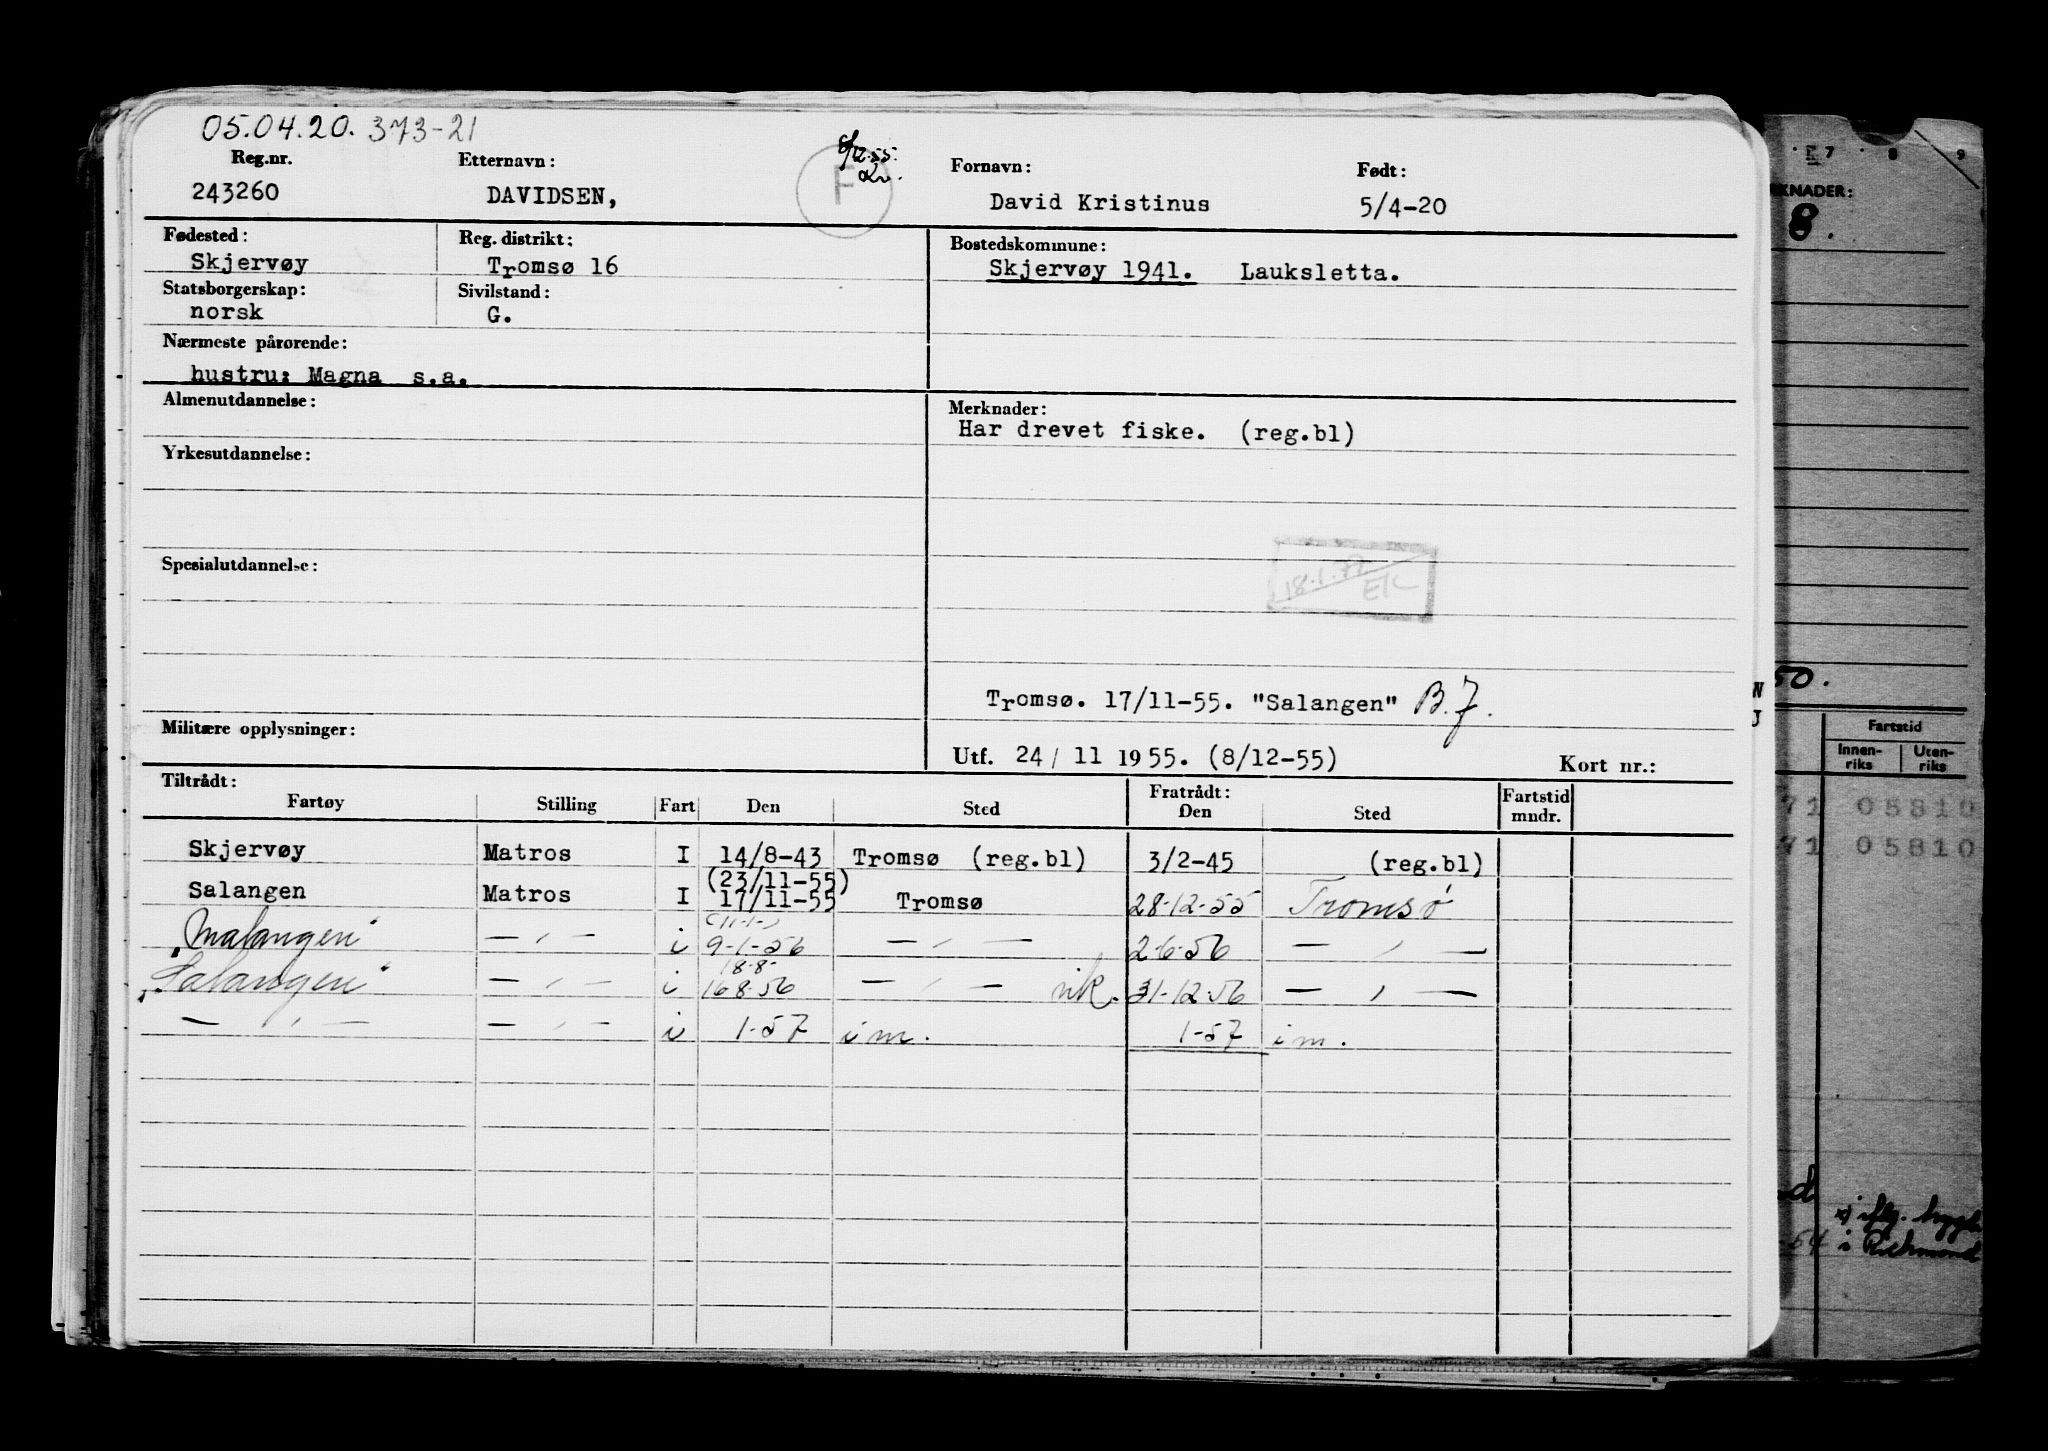 05.04.20. 373-21
8/12-55.
Reg.nr. Etternavn: F Fornavn: Født:
243260 DAVIDSEN, David Kristinus 5/4-20
Fødested: Reg. distrikt: Bostedskommune:
Skjervøy Tromsø 16 Skjervøy 1941. Lauksletta.
Statsborgerskap: Sivilstand:
norsk G.
Nærmeste pårørende:
hustru: Magna s.a.
Almenutdannelse: Merknader:
Har drevet fiske. (reg.bl)
Yrkesutdannelse:
Spesialutdannelse:
18.1.72
Tromsø. 17/11-55. "Salangen" B.J.
Militære opplysninger:
Utf. 24/ 11 1955. (8/12-55) Kort nr.:
Tiltrådt: Fratrådt: Fartstid
Fartøy Stilling Fart Den Sted Den Sted mndr.
Skjervøy Matros I 14/8-43 Tromsø (reg.bl) 3/2-45 (reg.bl)
(23/11-55)
Salangen Matros I 17/11-55 Tromsø 28-12-55 Tromsø
(11-1-)
"Malangen" — " — i 9-1-56 — " — 2-6-56 — " —
18-8-
"Salangen" — " — i 16-8-56 — " — vik. 31-12-56 — " —
— " — — " — i 1-57 i m. 1-57 i m.
7 8 9
KNADER:
8.
50.
N
J
Fartstid
Innen-riks Uten-riks
71 05810
71 05810
i Richmond